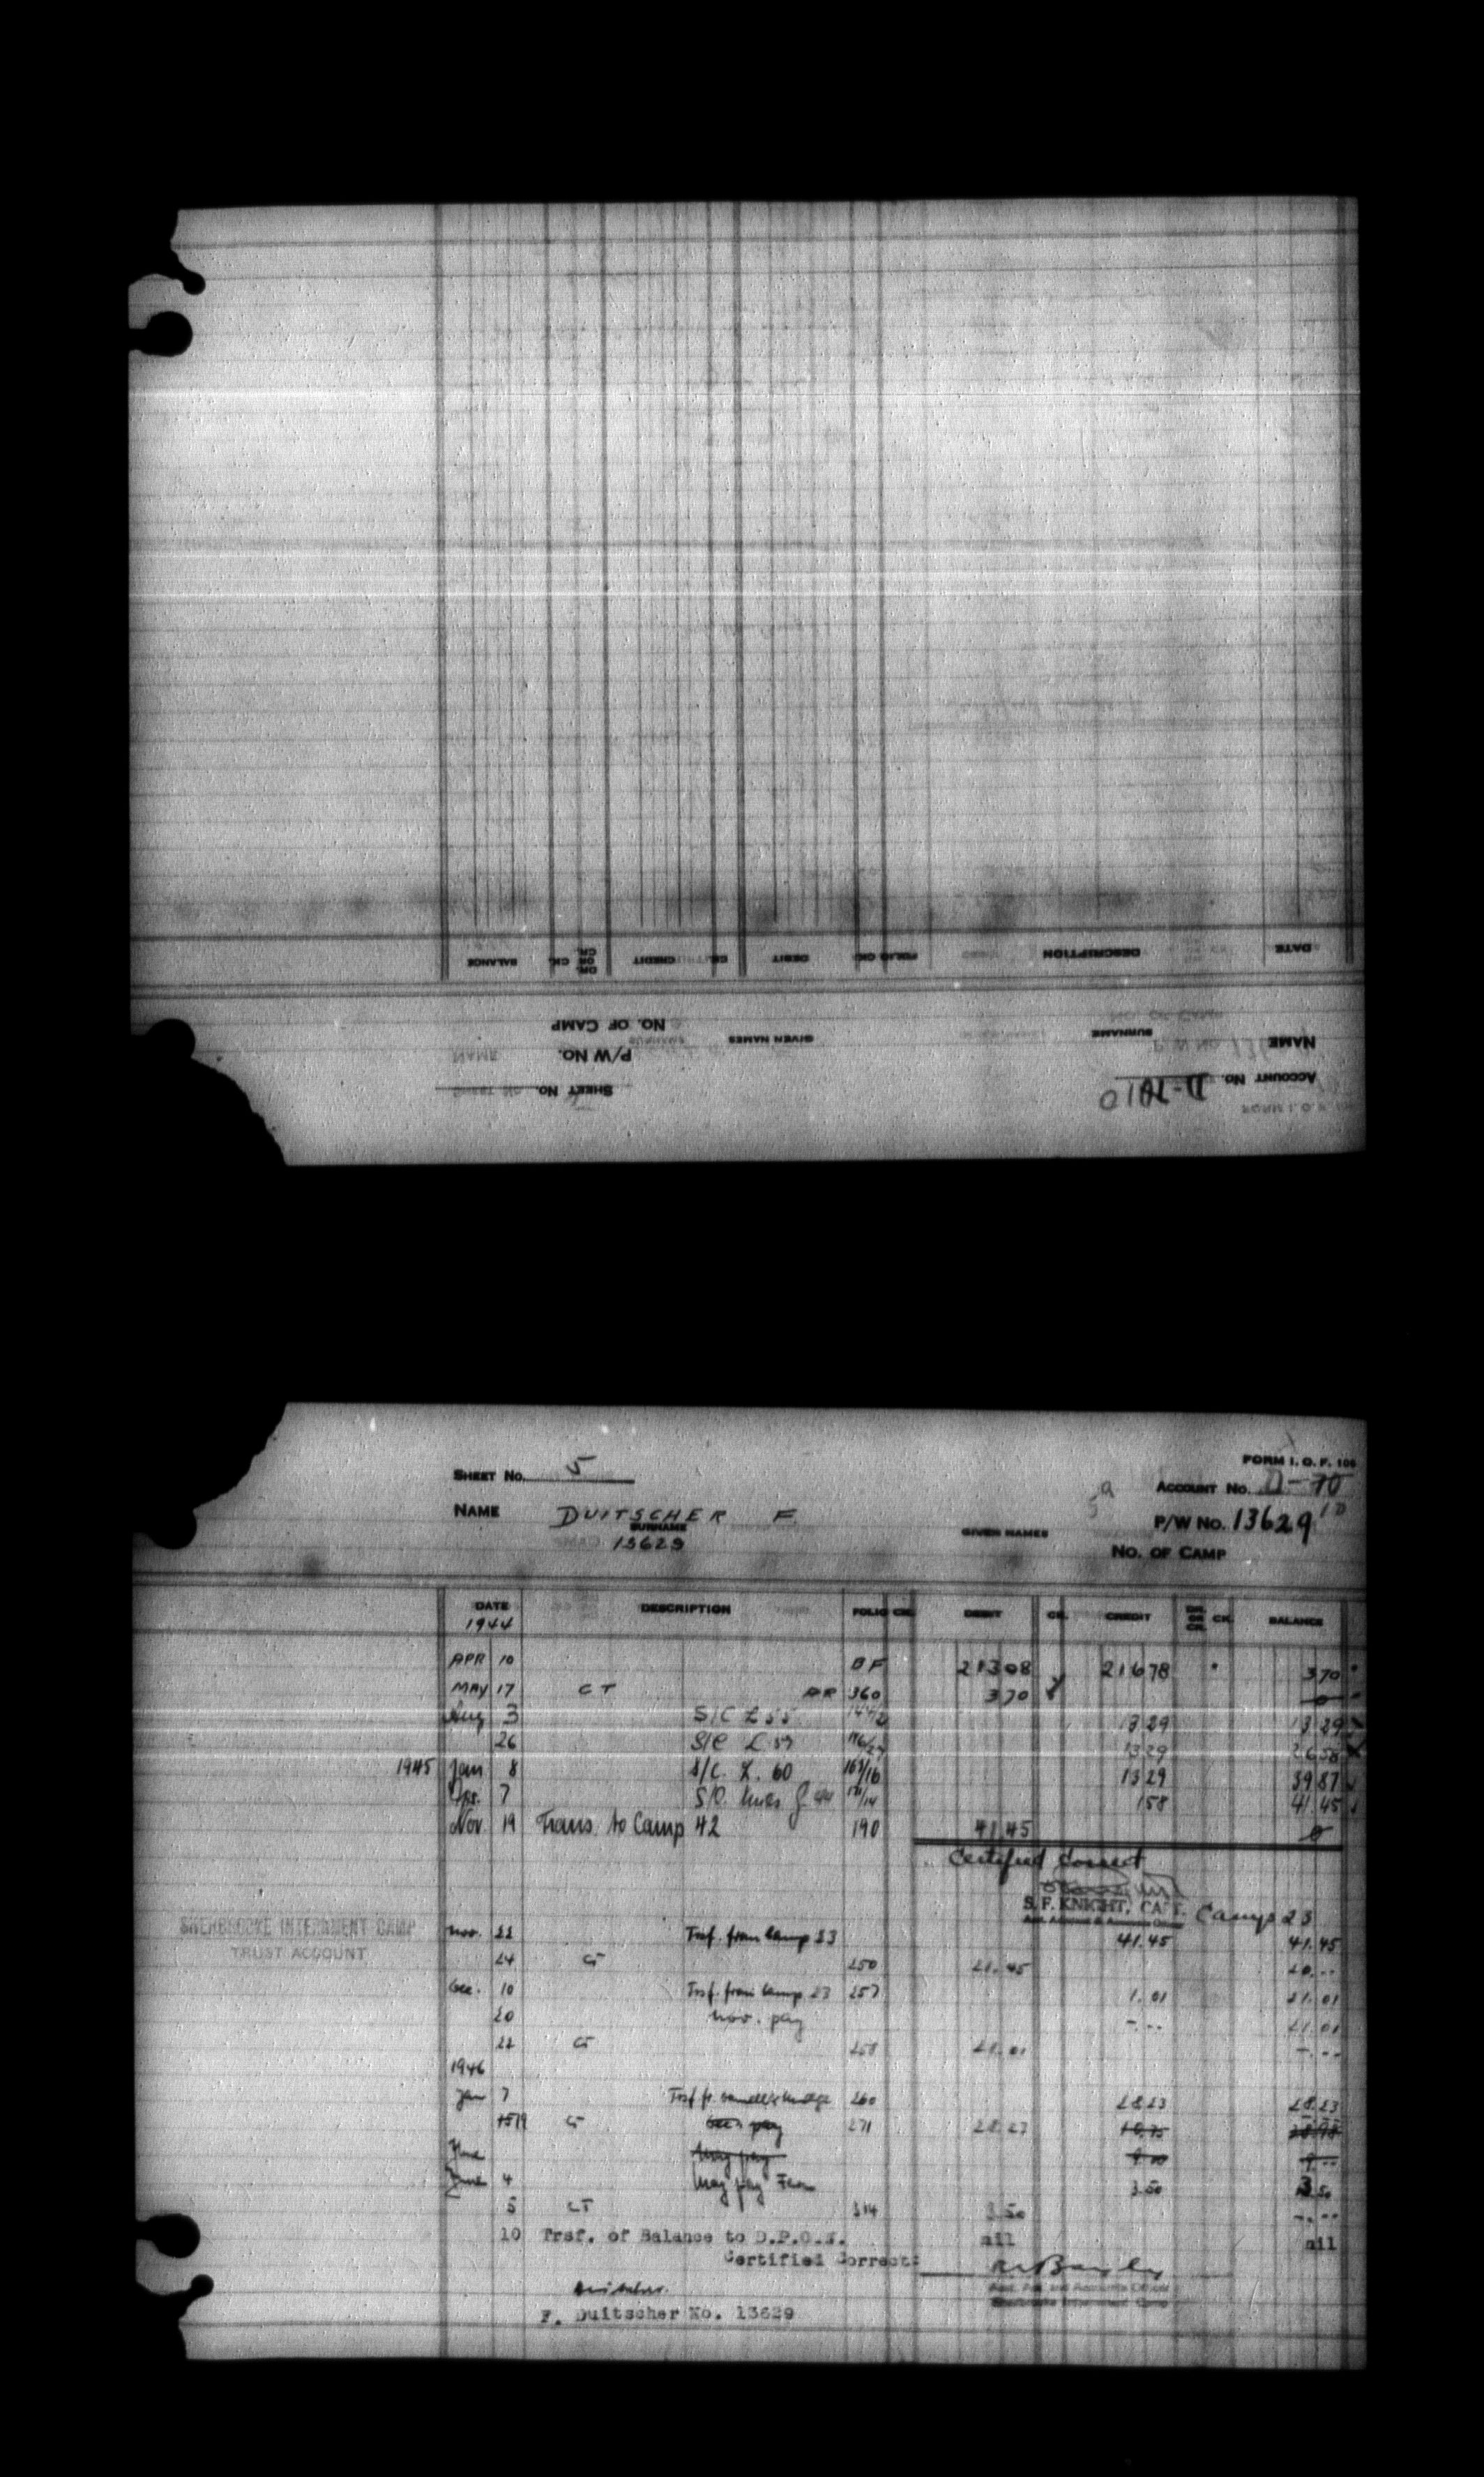 BALANCE CK. DR. OR CR. CREDIT CK. DEBIT CK. FOLIO DESCRIPTION DATE
NO. OF CAMP GIVEN NAMES SURNAME NAME
P/W NO.
SHEET NO. ACCOUNT NO. D-
FORM I. O. F. 106
SHEET NO. 5
ACCOUNT NO. D-70
NAME DUITSCHER F.
SURNAME
GIVEN NAMES
P/W NO. 13629
13629
NO. OF CAMP
DATE DESCRIPTION FOLIO CK. DEBIT CK. CREDIT DR. OR CR. CK. BALANCE
1944
APR 10 BF 213 08 216 78 3 70
MAY 17 CT 360 3 70 0
Aug 3 S/C L 55 13 29 13 29
26 S/C L 59 13 29 26 58
1945 Jan 8 S/C. L. 60 13 29 39 87
7 1 58 41.45
Nov 19 Trans. to Camp 42 190 41.45 0
Certified Correct
S. F. KNIGHT, CAPT. Camp 23
SHERBROOKE INTERNMENT CAMP
TRUST ACCOUNT
Nov. 22 Trsf. from Camp 23 41.45 41.45
24 CT 250 21.45 20.--
Dec. 10 Trsf. from Camp 23 257 1.01 21.01
20 Nov. pay -.-- 21.01
22 CT 258 21.01 -.--
1946
Jan 7 260 28.23 28.23
19 CT Dec. pay 271 28.23
June May pay
June 4 May pay 3.50 3.50
5 CT 314 3.50 -.--
10 Trsf. of Balance to D.P.O.W. nil nil
Certified Correct:
F. Duitscher No. 13629